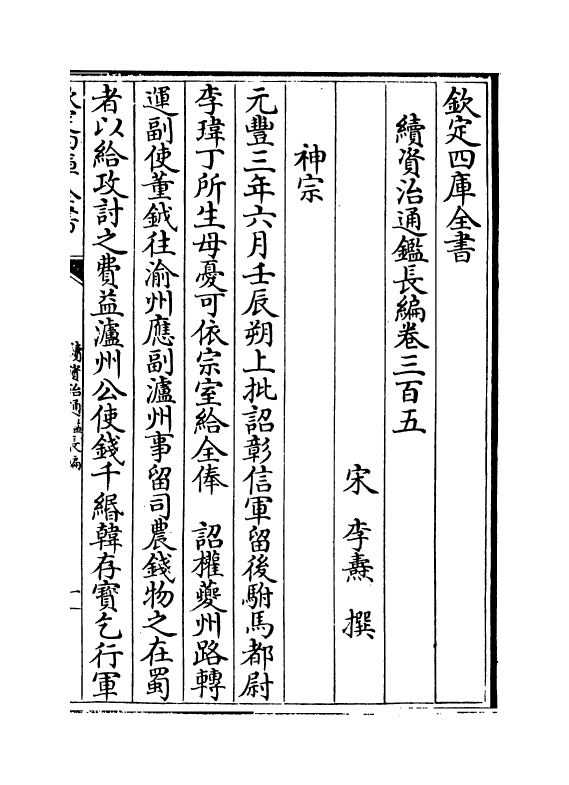 欽定四庫全書
續資治通鑑長編卷三百五
宋　李燾　撰
神宗
元豐三年六月壬辰朔上批詔彰信軍留後駙馬都尉
李瑋丁所生母憂可依宗室給全俸　詔權夔州路轉
運副使董鉞往渝州應副瀘州事留司農錢物之在蜀
者以給攻討之費益瀘州公使錢千緡韓存寳乞行軍
欽定四庫全書
續資治通鑑長編
一